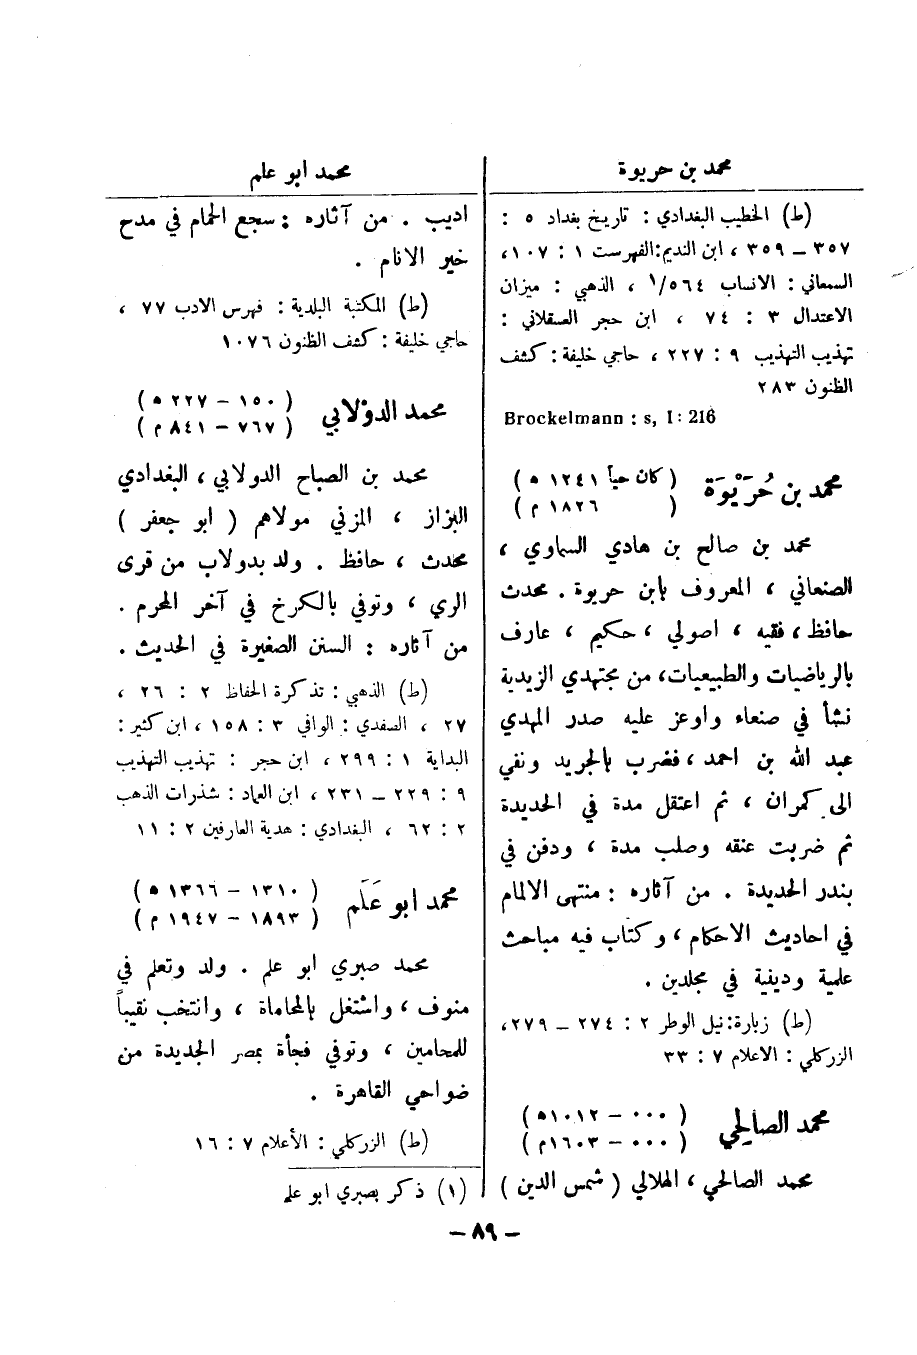 محمد بن حريوة
(ط) الخطيب البغدادي : تاريخ بغداد ٥ :
٣٥٧ – ٣٥٩ ، ابن النديم:الفهرست ١ : ١٠٧ ،
السمعاني : الانساب ٥٦٤/١ ، الذهبي : ميزان
الاعتدال ٣ : ٧٤ ، ابن حجر العسقلاني :
تهذيب التهذيب ٩ : ٢٢٧ ، حاجي خليفة : كشف
الظنون ٢٨٣
Brockelmann : s, I : 216
محمد بن حُرَيْوَة ( كان حياً ١٢٤١ ه )
( ١٨٢٦ م )
محمد بن صالح بن هادي السماوي ،
الصنعاني ، المعروف بابن حريوة . محدث
حافظ ، فقيه ، اصولي ، حكيم ، عارف
بالرياضيات والطبيعيات، من مجتهدي الزيدية
نشأ في صنعاء واوعز عليه صدر المهدي
عبد الله بن احمد ، فضرب بالجريد ونفي
الى كمران ، ثم اعتقل مدة في الحديدة
ثم ضربت عنقه وصلب مدة ، ودفن في
بندر الحديدة . من آثاره : منتهى الالمام
في احاديث الاحكام ، وكتاب فيه مباحث
علمية ودينية في مجلدين .
(ط) زبارة: نيل الوطر ٢ : ٢٧٤ – ٢٧٩ ،
الزركلي : الاعلام ٧ : ٣٣
محمد الصالحي ( ٠٠٠ – ١٠١٢ه )
( ٠٠٠ – ١٦٠٣م )
محمد الصالحي ، الهلالي ( شمس الدين )
محمد ابو علم
اديب . من آثاره : سجع الحمام في مدح
خير الانام .
(ط) المكتبة البلدية : فهرس الادب ٧٧ ،
حاجي خليفة : كشف الظنون ١٠٧٦
محمد الدوْلابي ( ١٥٠ – ٢٢٧ ه )
( ٧٦٧ – ٨٤١ م )
محمد بن الصباح الدولابي ، البغدادي
البزاز ، المزني مولاهم ( ابو جعفر )
محدث ، حافظ . ولد بدولاب من قرى
الري ، وتوفي بالكرخ في آخر المحرم .
من آثاره : السنن الصغيرة في الحديث .
(ط) الذهبي : تذكرة الحفاظ ٢ : ٢٦ ،
٢٧ ، الصفدي : الوافي ٣ : ١٥٨ ، ابن كثير :
البداية ١ : ٢٩٩ ، ابن حجر : تهذيب التهذيب
٩ : ٢٢٩ – ٢٣١ ، ابن العماد : شذرات الذهب
٢ : ٦٢ ، البغدادي : هدية العارفين ٢ : ١١
محمد ابو عَلَم ( ١٣١٠ – ١٣٦٦ ه )
( ١٨٩٣ – ١٩٤٧ م )
محمد صبري ابو علم . ولد وتعلم في
منوف ، واشتغل بالمحاماة ، وانتخب نقيباً
للمحامين ، وتوفي فجأة بمصر الجديدة من
ضواحي القاهرة .
(ط) الزركلي : الأعلام ٧ : ١٦
(١) ذكر بصبري ابو علم
– ٨٩ –